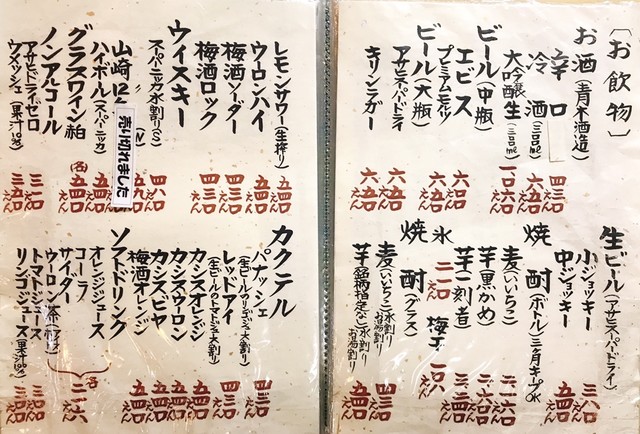 〔お飲物〕
お酒（青木酒造）
辛口
冷酒（三〇〇ml）
大吟醸生（三〇〇ml）
ビール（中瓶）
エビス
プレミアムモルツ
ビール（大瓶）
アサヒスーパードライ
キリンラガー
一〇六〇えん
六六〇
六五〇えん
六五〇えん
生ビール（アサヒスーパードライ）
小ジョッキー
中ジョッキー
三八〇えん
五四〇えん
焼酎（ボトル）三ヶ月キープOK
麦（いいちこ）
芋（黒かめ）
芋（一刻者）
氷 二一〇えん
梅干 一〇六えん
焼酎（グラス）
麦（いいちこ）水割り お湯割り
芋（銘柄指定なし）水割り お湯割り
五四〇えん
レモンサワー（生搾り）
ウーロンハイ
梅酒ソーダー
梅酒ロック
ウイスキー
スーパーニッカ水割り（S）
山崎12
売り切れました
ハイボール（スーパーニッカ）
グラスワイン 赤白
ノンアルコール
アサヒドライゼロ
ウメッシュ（果汁10%）
五四〇えん
五四〇えん
四三〇えん
四三〇えん
五四〇えん
（各）五四〇えん
三八〇えん
カクテル
パナッシェ
（生ビールのリボンジュース割り）
レッドアイ
（生ビールのトマトジュース割り）
カシスオレンジ
カシスウーロン
カシスビヤ
梅酒オレンジ
四三〇えん
四三〇えん
五四〇えん
五四〇えん
五四〇えん
五四〇えん
ソフトドリンク
オレンジジュース
コーラ
サイダー
ウーロン茶
トマトジュース
リンゴジュース（果汁100%）
各 二一六えん